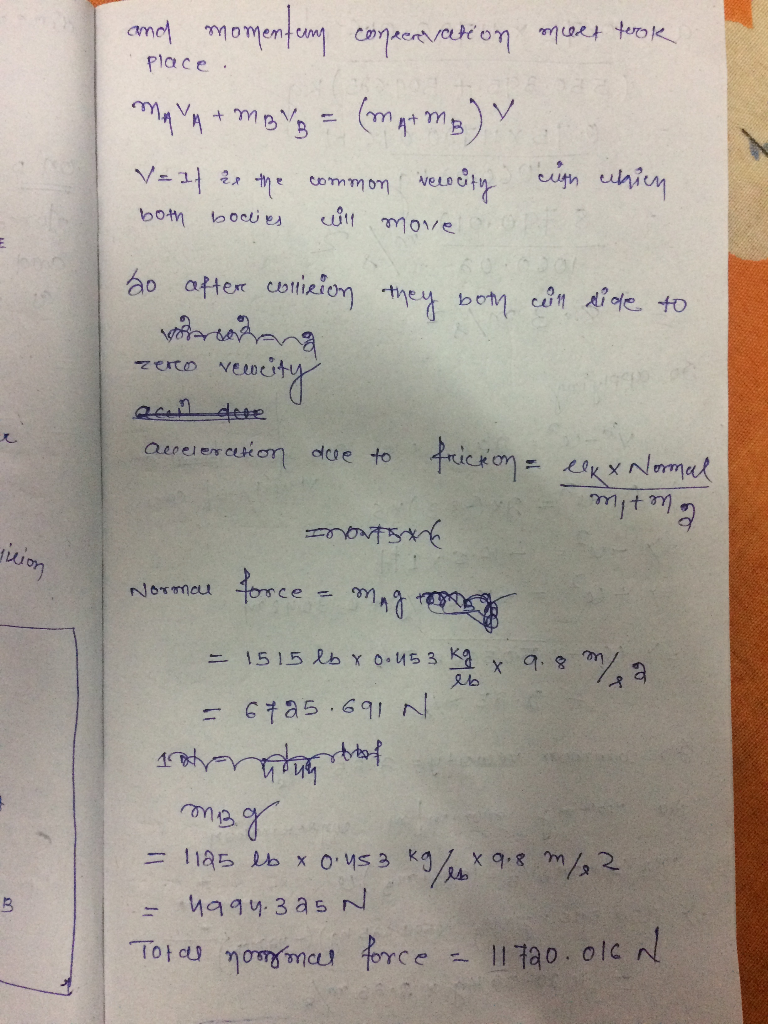 and momentum conservation must took
place.
mAVA + mBVB = (mA+mB) V
V = It is the common velocity with which
both bodies will move
So after collision they both will slide to
zero velocity
accn due
acceleration due to friction = uk x Normal
m1+m2
Normal force = mAg
= 1515 lb x 0.453 kg/lb x 9.8 m/s2
= 6725.691 N
mBg
= 1125 lb x 0.453 kg/lb x 9.8 m/s2
= 4994.325 N
Total normal force = 11720.016 N
ision
B